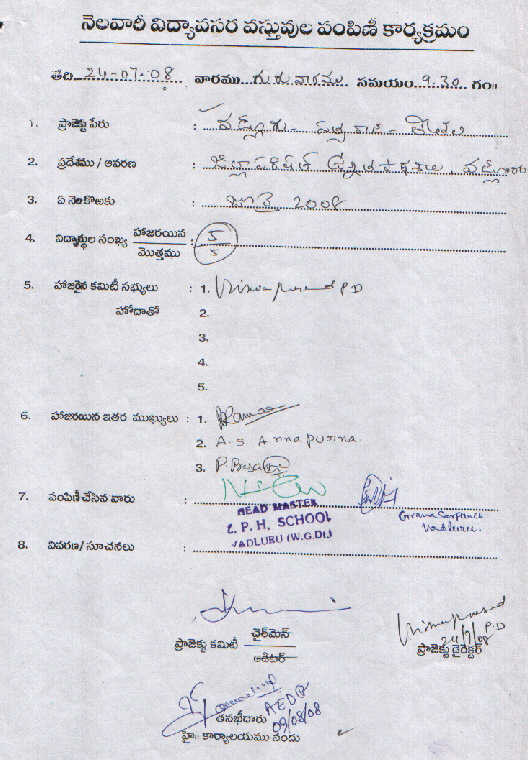 నెలవారీ విద్యాపసర వస్తువుల పంపిణీ కార్యక్రమం
తేది. 24-07-08 వారము గురువారము సమయం 9.30 గం॥
1. ప్రాజెక్టు పేరు :
2. ప్రదేశము / ఆవరణ : జిల్లా పరిషత్ ఉన్నత పాఠశాల, వడ్లూరు
3. ఏ నెలకొఱకు : జూలై 2008
4. విద్యార్థుల సంఖ్య హాజరయిన : 5
మొత్తము 5
5. హాజరైన కమిటీ సభ్యులు : 1. P.D
హోదాతో 2.
3.
4.
5.
6. హాజరయిన ఇతర ముఖ్యులు : 1.
2. A.S Annapurna.
3.
7. పంపిణీ చేసిన వారు :
HEAD MASTER
Z. P. H. SCHOOL
VADLURU (W.G.Dt.)
Grama Sarpanch
Vadluru.
8. వివరణ/ సూచనలు :
ప్రాజెక్టు కమిటీ చైర్‌మెన్
ఆడిటర్
24/7/08 P.D
ప్రాజెక్టు డైరెక్టర్
AEDP
తనఖీదారు 09/08/08
హై. కార్యాలయము నందు